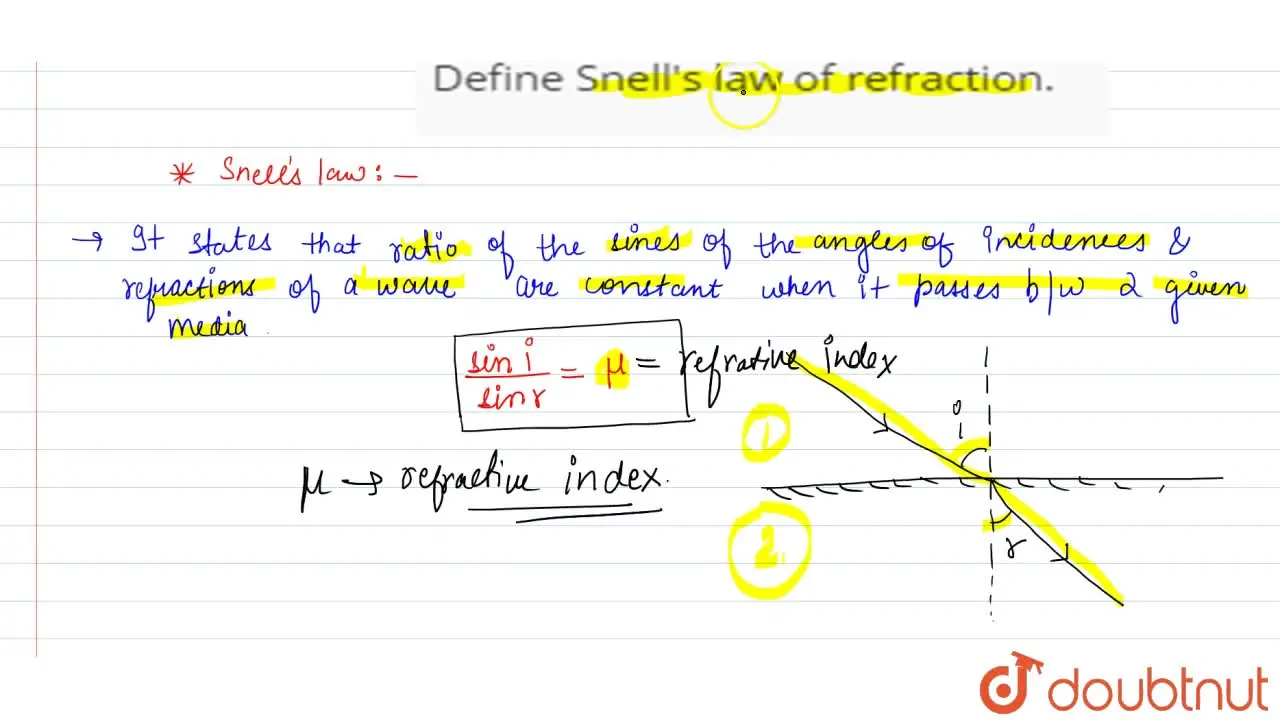 Define Snell's law of refraction.
* Snell's law : —
→ It states that ratio of the sines of the angles of incidences &
refractions of a wave are constant when it passes b/w 2 given
media.
sin i / sin r = μ = refrative index
i
1
μ → refractive index.
2
r
doubtnut